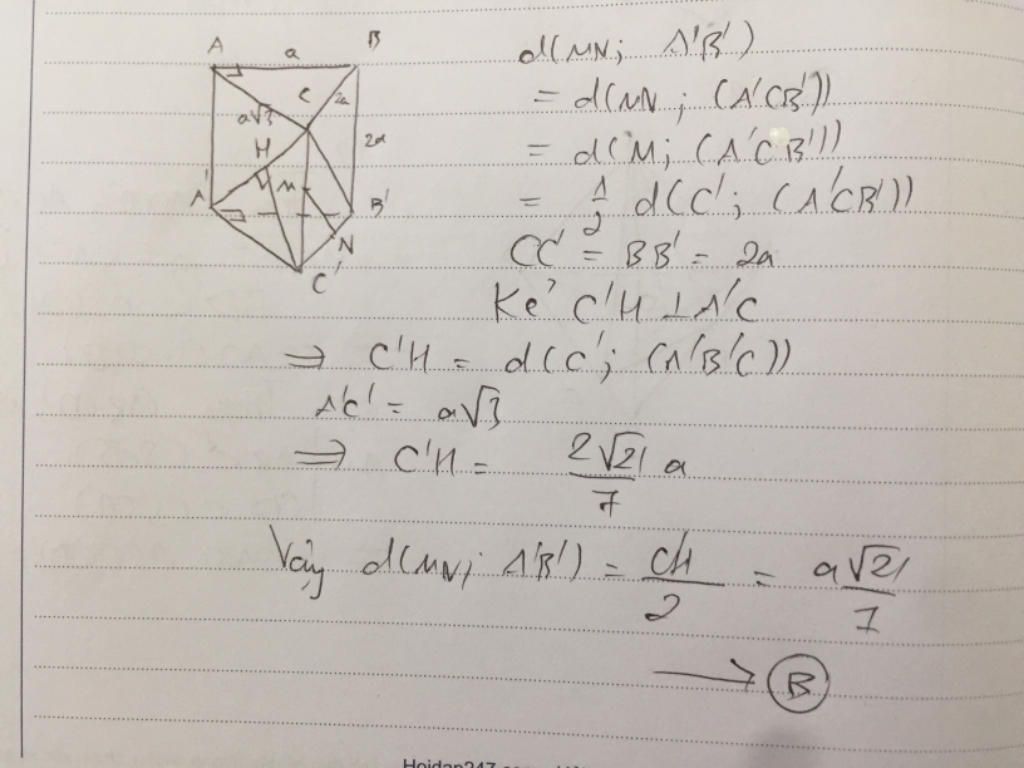 A a B
C 2a
a√3
H 2a
M
A' B'
N
C'
d(MN; A'B')
= d(MN; (A'CB'))
= d(M; (A'CB'))
= 1/2 d(C'; (A'CB'))
CC' = BB' = 2a
Kẻ C'H ⊥ A'C
⇒ C'H = d(C'; (A'B'C))
A'C' = a√3
⇒ C'H = 2√21/7 a
Vậy d(MN; A'B') = C'H/2 = a√21/7
→ B